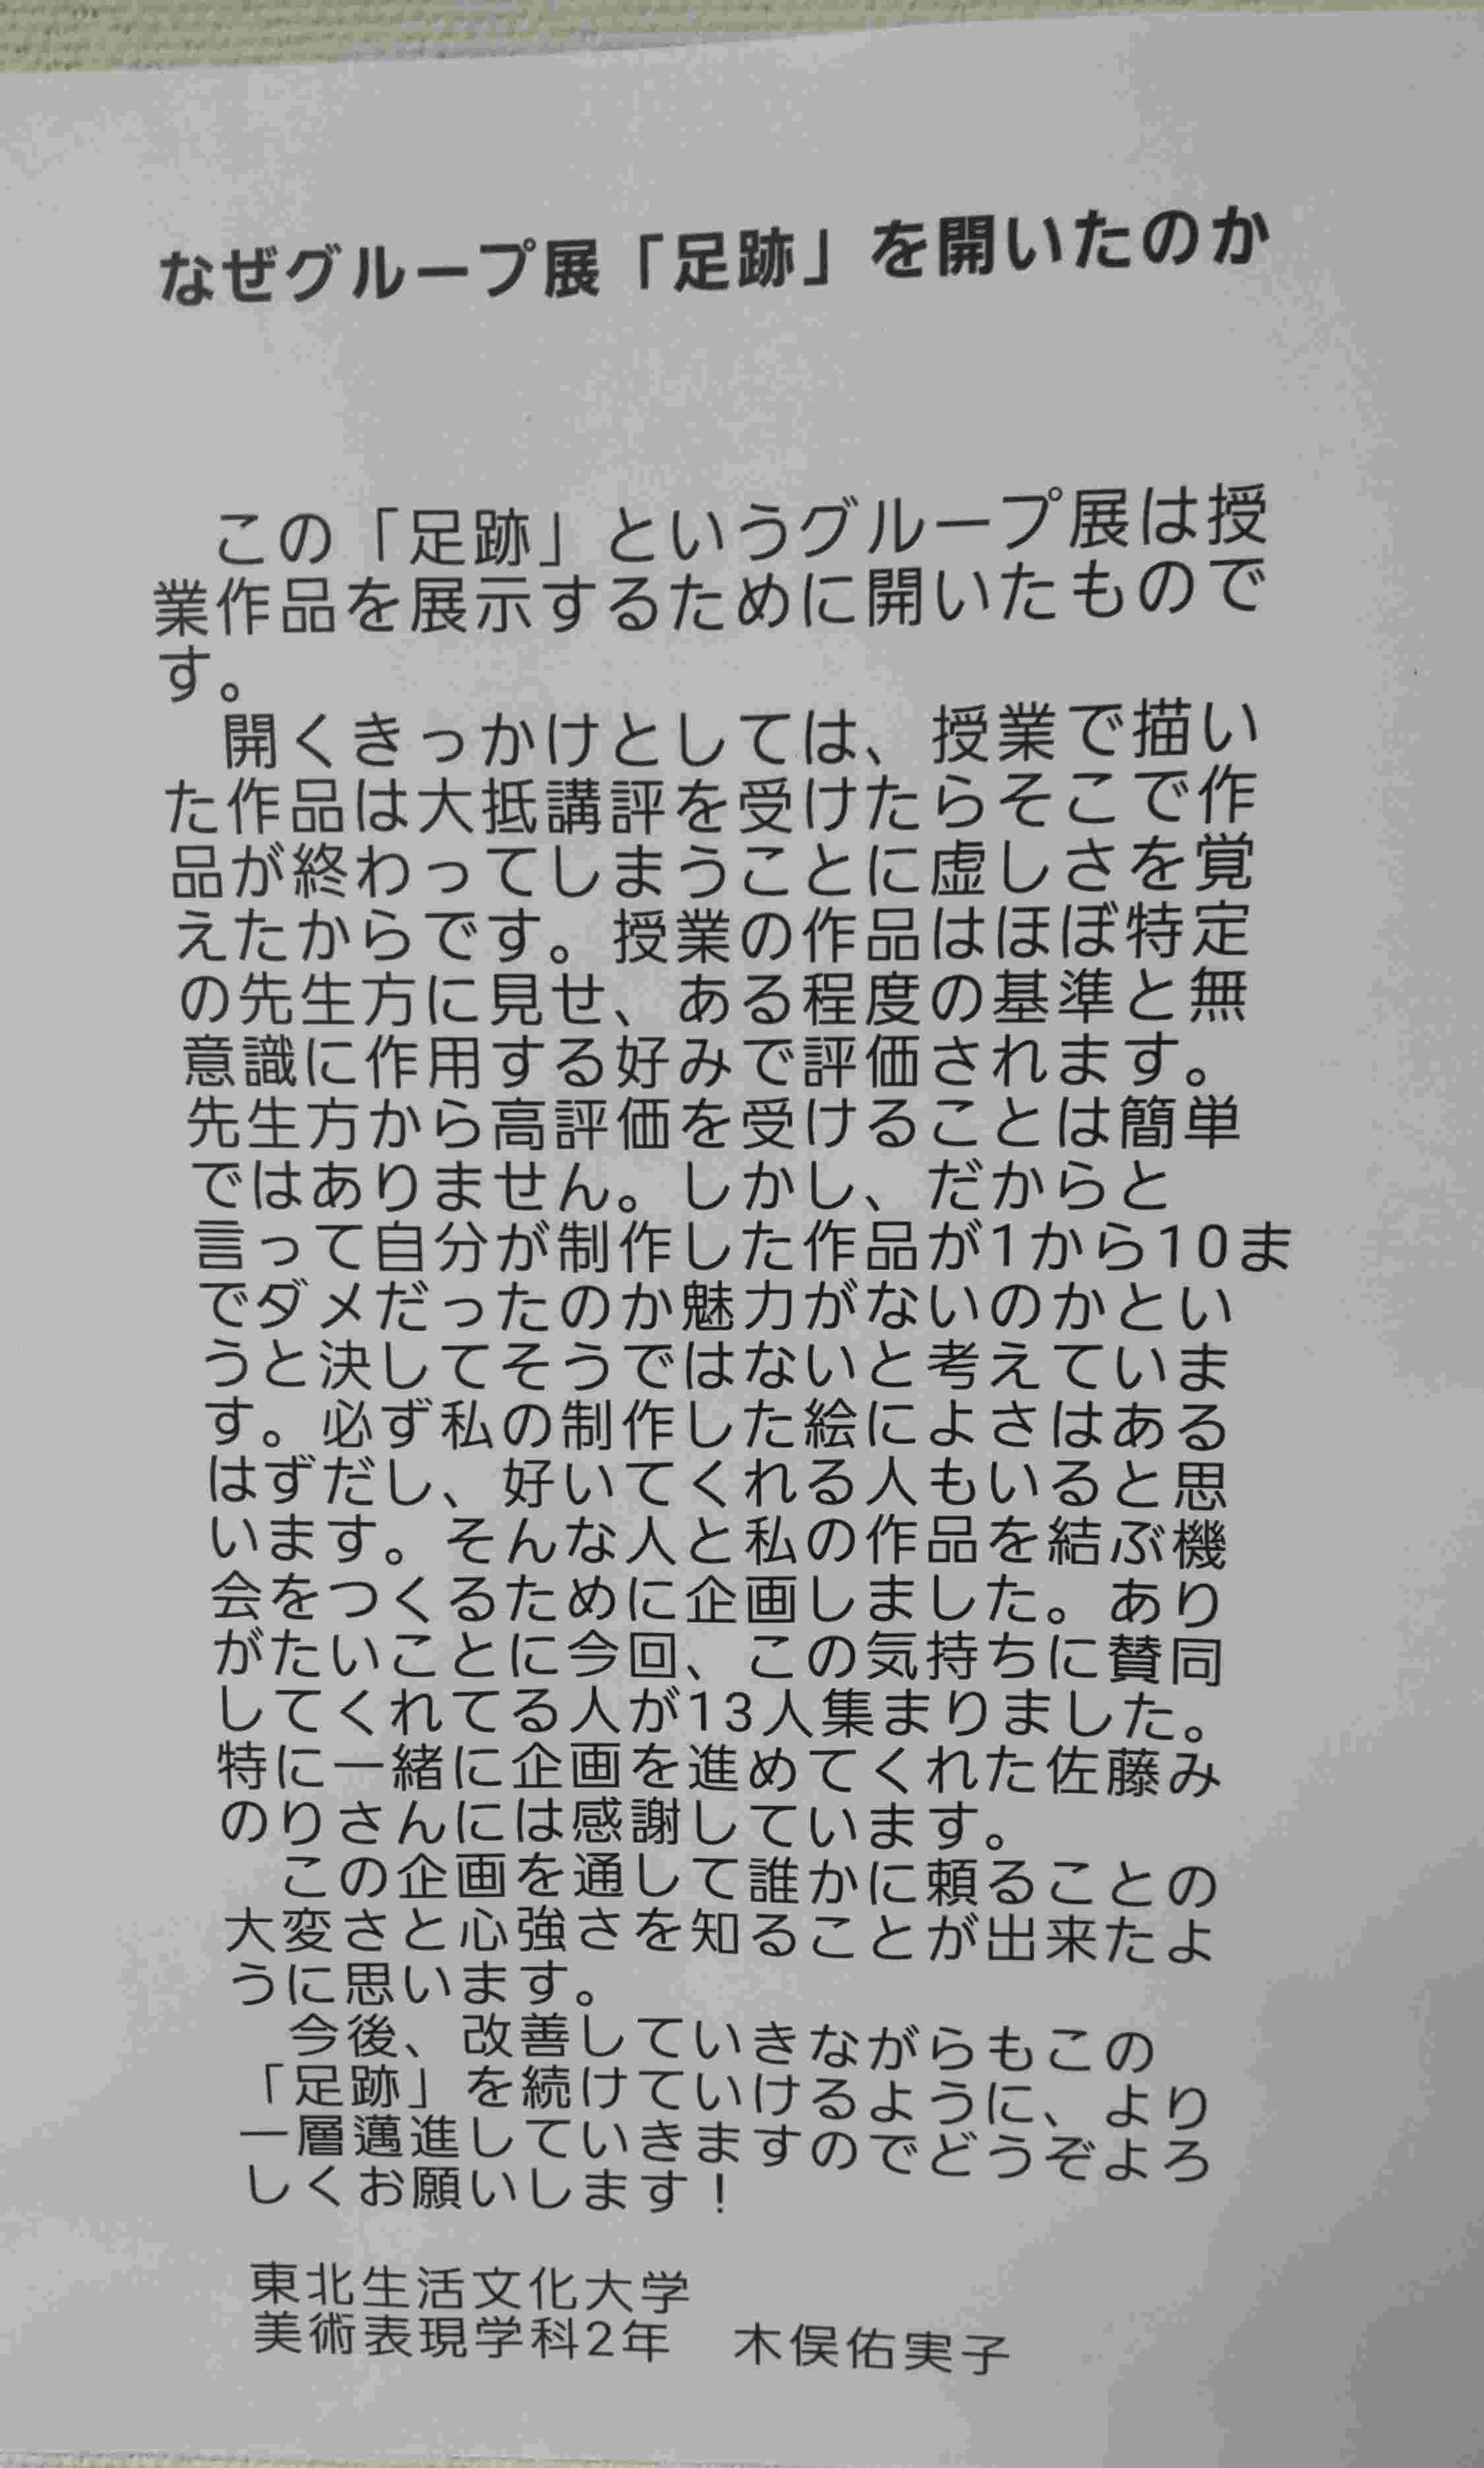 なぜグループ展「足跡」を開いたのか
この「足跡」というグループ展は授
業作品を展示するために開いたもので
す。
開くきっかけとしては、授業で描い
た作品は大抵講評を受けたらそこで作
品が終わってしまうことに虚しさを覚
えたからです。授業の作品はほぼ特定
の先生方に見せ、ある程度の基準と無
意識に作用する好みで評価されます。
先生方から高評価を受けることは簡単
ではありません。しかし、だからと
言って自分が制作した作品が1から10ま
でダメだったのか魅力がないのかとい
うと決してそうではないと考えていま
す。必ず私の制作した絵によさはある
はずだし、好いてくれる人もいると思
います。そんな人と私の作品を結ぶ機
会をつくるために企画しました。あり
がたいことに今回、この気持ちに賛同
してくれてる人が13人集まりました。
特に一緒に企画を進めてくれた佐藤み
のりさんには感謝しています。
この企画を通して誰かに頼ることの
大変さと心強さを知ることが出来たよ
うに思います。
今後、改善していきながらもこの
「足跡」を続けていけるように、より
一層邁進していきますのでどうぞよろ
しくお願いします！
東北生活文化大学
美術表現学科2年　木俣佑実子